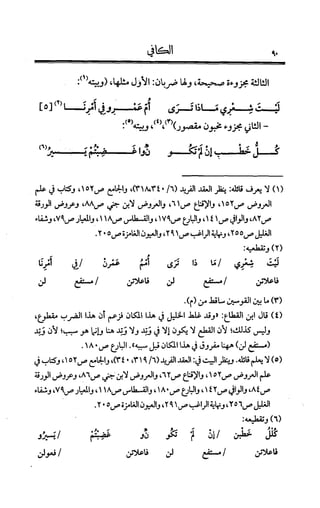 ٩٠
الكافي
الثالثة مجزوءة صحيحة، ولها ضربان: الأول مثلها، (وبيته(١):
لَيْتَ شِعْرِي مَاذَا تَرَى أُمّ عَمْرو في أَمْرِنَا(٢) [٥]
- الثاني مجزوء مخبون مقصور(٣)(٤)، وبيته(٥):
كُلُّ خَطْبٍ إنْ لَمْ تَكُو نُوا غَضِبْتُمْ يَسِيرُ(٦)
(١) لا يعرف قائله: ينظر العقد الفريد (٣١٨،٣٤٠/٦)، والجامع ص١٥٢، وكتاب في علم
العروض ص١٥٢، والإقناع ص٦١، والعروض لابن جني ص٨٨، وعروض الورقة
ص٨٢، والوافي ص١٤١، والبارع ص١٧٩، والقسطاس ص١١٨، والمعيار ص٧٩، وشفاء
الغليل ص٢٥٥، ونهاية الراغب ص٢٩١، والعيون الغامزة ص٢٠٥.
(٢) وتقطيعه:
لَيْتَ شِعْرِي /مَا ذَا تَرَى أُمْمُ عَمْرِنْ /في أَمْرِنَا
فاعلاتن /مستفع لن فاعلاتن /مستفع لن
(٣) ما بين القوسين ساقط من (م).
(٤) قال ابن القطاع: «وقد غلط الخليل في هذا المكان فزعم أن هذا الضرب مقطوع،
وليس كذلك؛ لأن القطع لا يكون إلا في وتد ولا وتد هنا وإنما هو سبب؛ لأن وتد
(مستفع لن) ههنا مفروق في هذا المكان قبل سببه». البارع ص١٨٠.
(٥) لا يعلم قائله. وينظر البيت في: العقد الفريد (٣٤٠،٣١٩/٦)، والجامع ص١٥٢، وكتاب في
علم العروض ص١٥٢، والإقناع ص٦٢، والعروض لابن جني ص٨٦، وعروض الورقة
ص٨٤، والوافي ص١٤٢، والبارع ص١٨٠، والقسطاس ص١١٨، والمعيار ص٧٩، وشفاء
الغليل ص٢٥٦، ونهاية الراغب ص٢٩١، والعيون الغامزة ص٢٠٥.
(٦) وتقطيعه:
كُلْلُ خَطْبِن /إنْ لَمْ تَكُو نُو غَضِبْتُمْ /يَسِيرُو
فاعلاتن /مستفع لن فاعلاتن /فعولن